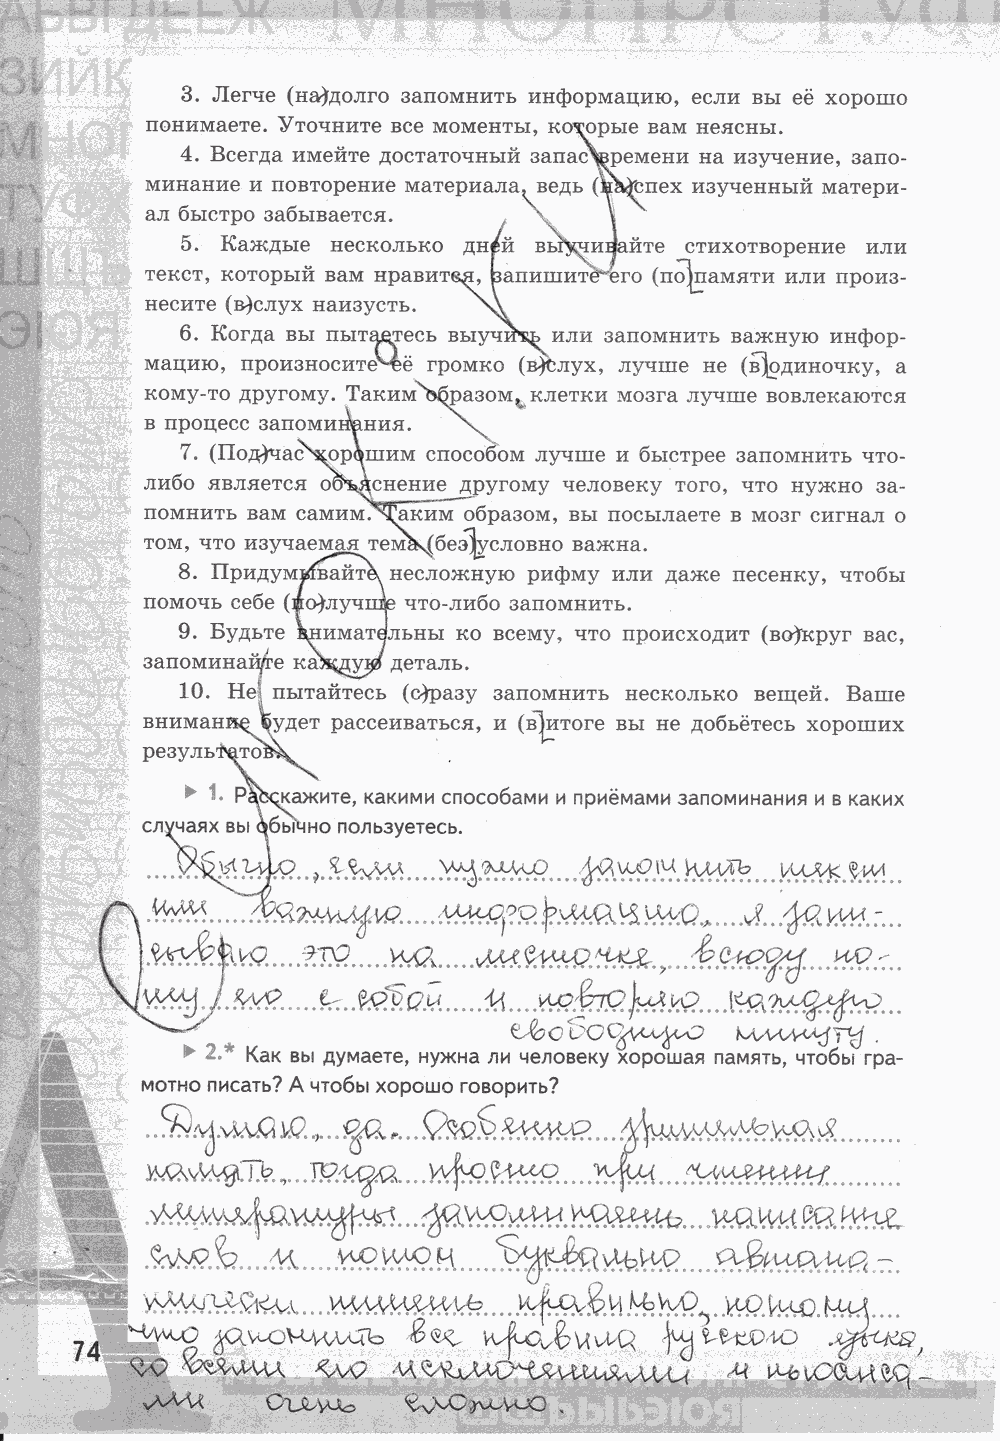 АБВГДЕЁЖ МНОПРСТУФ
ЗИЙК
МНОП
ТУФХ
ШЩЪ
ЭЮЯ
3. Легче (на)долго запомнить информацию, если вы её хорошо
понимаете. Уточните все моменты, которые вам неясны.
4. Всегда имейте достаточный запас времени на изучение, запо-
минание и повторение материала, ведь (на)спех изученный матери-
ал быстро забывается.
5. Каждые несколько дней выучивайте стихотворение или
текст, который вам нравится, запишите его (по)памяти или произ-
несите (в)слух наизусть.
6. Когда вы пытаетесь выучить или запомнить важную инфор-
мацию, произносите её громко (в)слух, лучше не (в)одиночку, а
кому-то другому. Таким образом, клетки мозга лучше вовлекаются
в процесс запоминания.
7. (Под)час хорошим способом лучше и быстрее запомнить что-
либо является объяснение другому человеку того, что нужно за-
помнить вам самим. Таким образом, вы посылаете в мозг сигнал о
том, что изучаемая тема (без)условно важна.
8. Придумывайте несложную рифму или даже песенку, чтобы
помочь себе (по)лучше что-либо запомнить.
9. Будьте внимательны ко всему, что происходит (во)круг вас,
запоминайте каждую деталь.
10. Не пытайтесь (с)разу запомнить несколько вещей. Ваше
внимание будет рассеиваться, и (в)итоге вы не добьётесь хороших
результатов.
1. Расскажите, какими способами и приёмами запоминания и в каких
случаях вы обычно пользуетесь.
Обычно, если нужно запомнить текст
или важную информацию, я запи-
сываю это на листочке, всюду но-
шу его с собой и повторяю каждую
свободную минуту.
2.* Как вы думаете, нужна ли человеку хорошая память, чтобы гра-
мотно писать? А чтобы хорошо говорить?
Думаю, да. Особенно зрительная
память, тогда просто при чтении
литературы запоминаешь написание
слов и потом буквально автома-
тически пишешь правильно, потому
что запомнить все правила русского языка,
со всеми его исключениями и нюанса-
ми очень сложно.
74
urokiki.ru